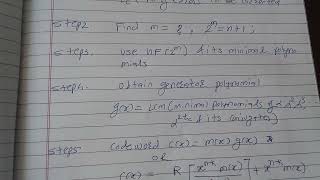 step2 Find m = ?, 2^m = n+1;
step3. use nF(2^m) & its minimal polyno
mials
step4. obtain generator polynomial
g(x) = LCM(minimal polynomials of α α² α³
α^2t & its conjugates)
step5 codeword c(x) = m(x) g(x)
or
c(x) = R [x^n-k m(x)] + x^n-k m(x)